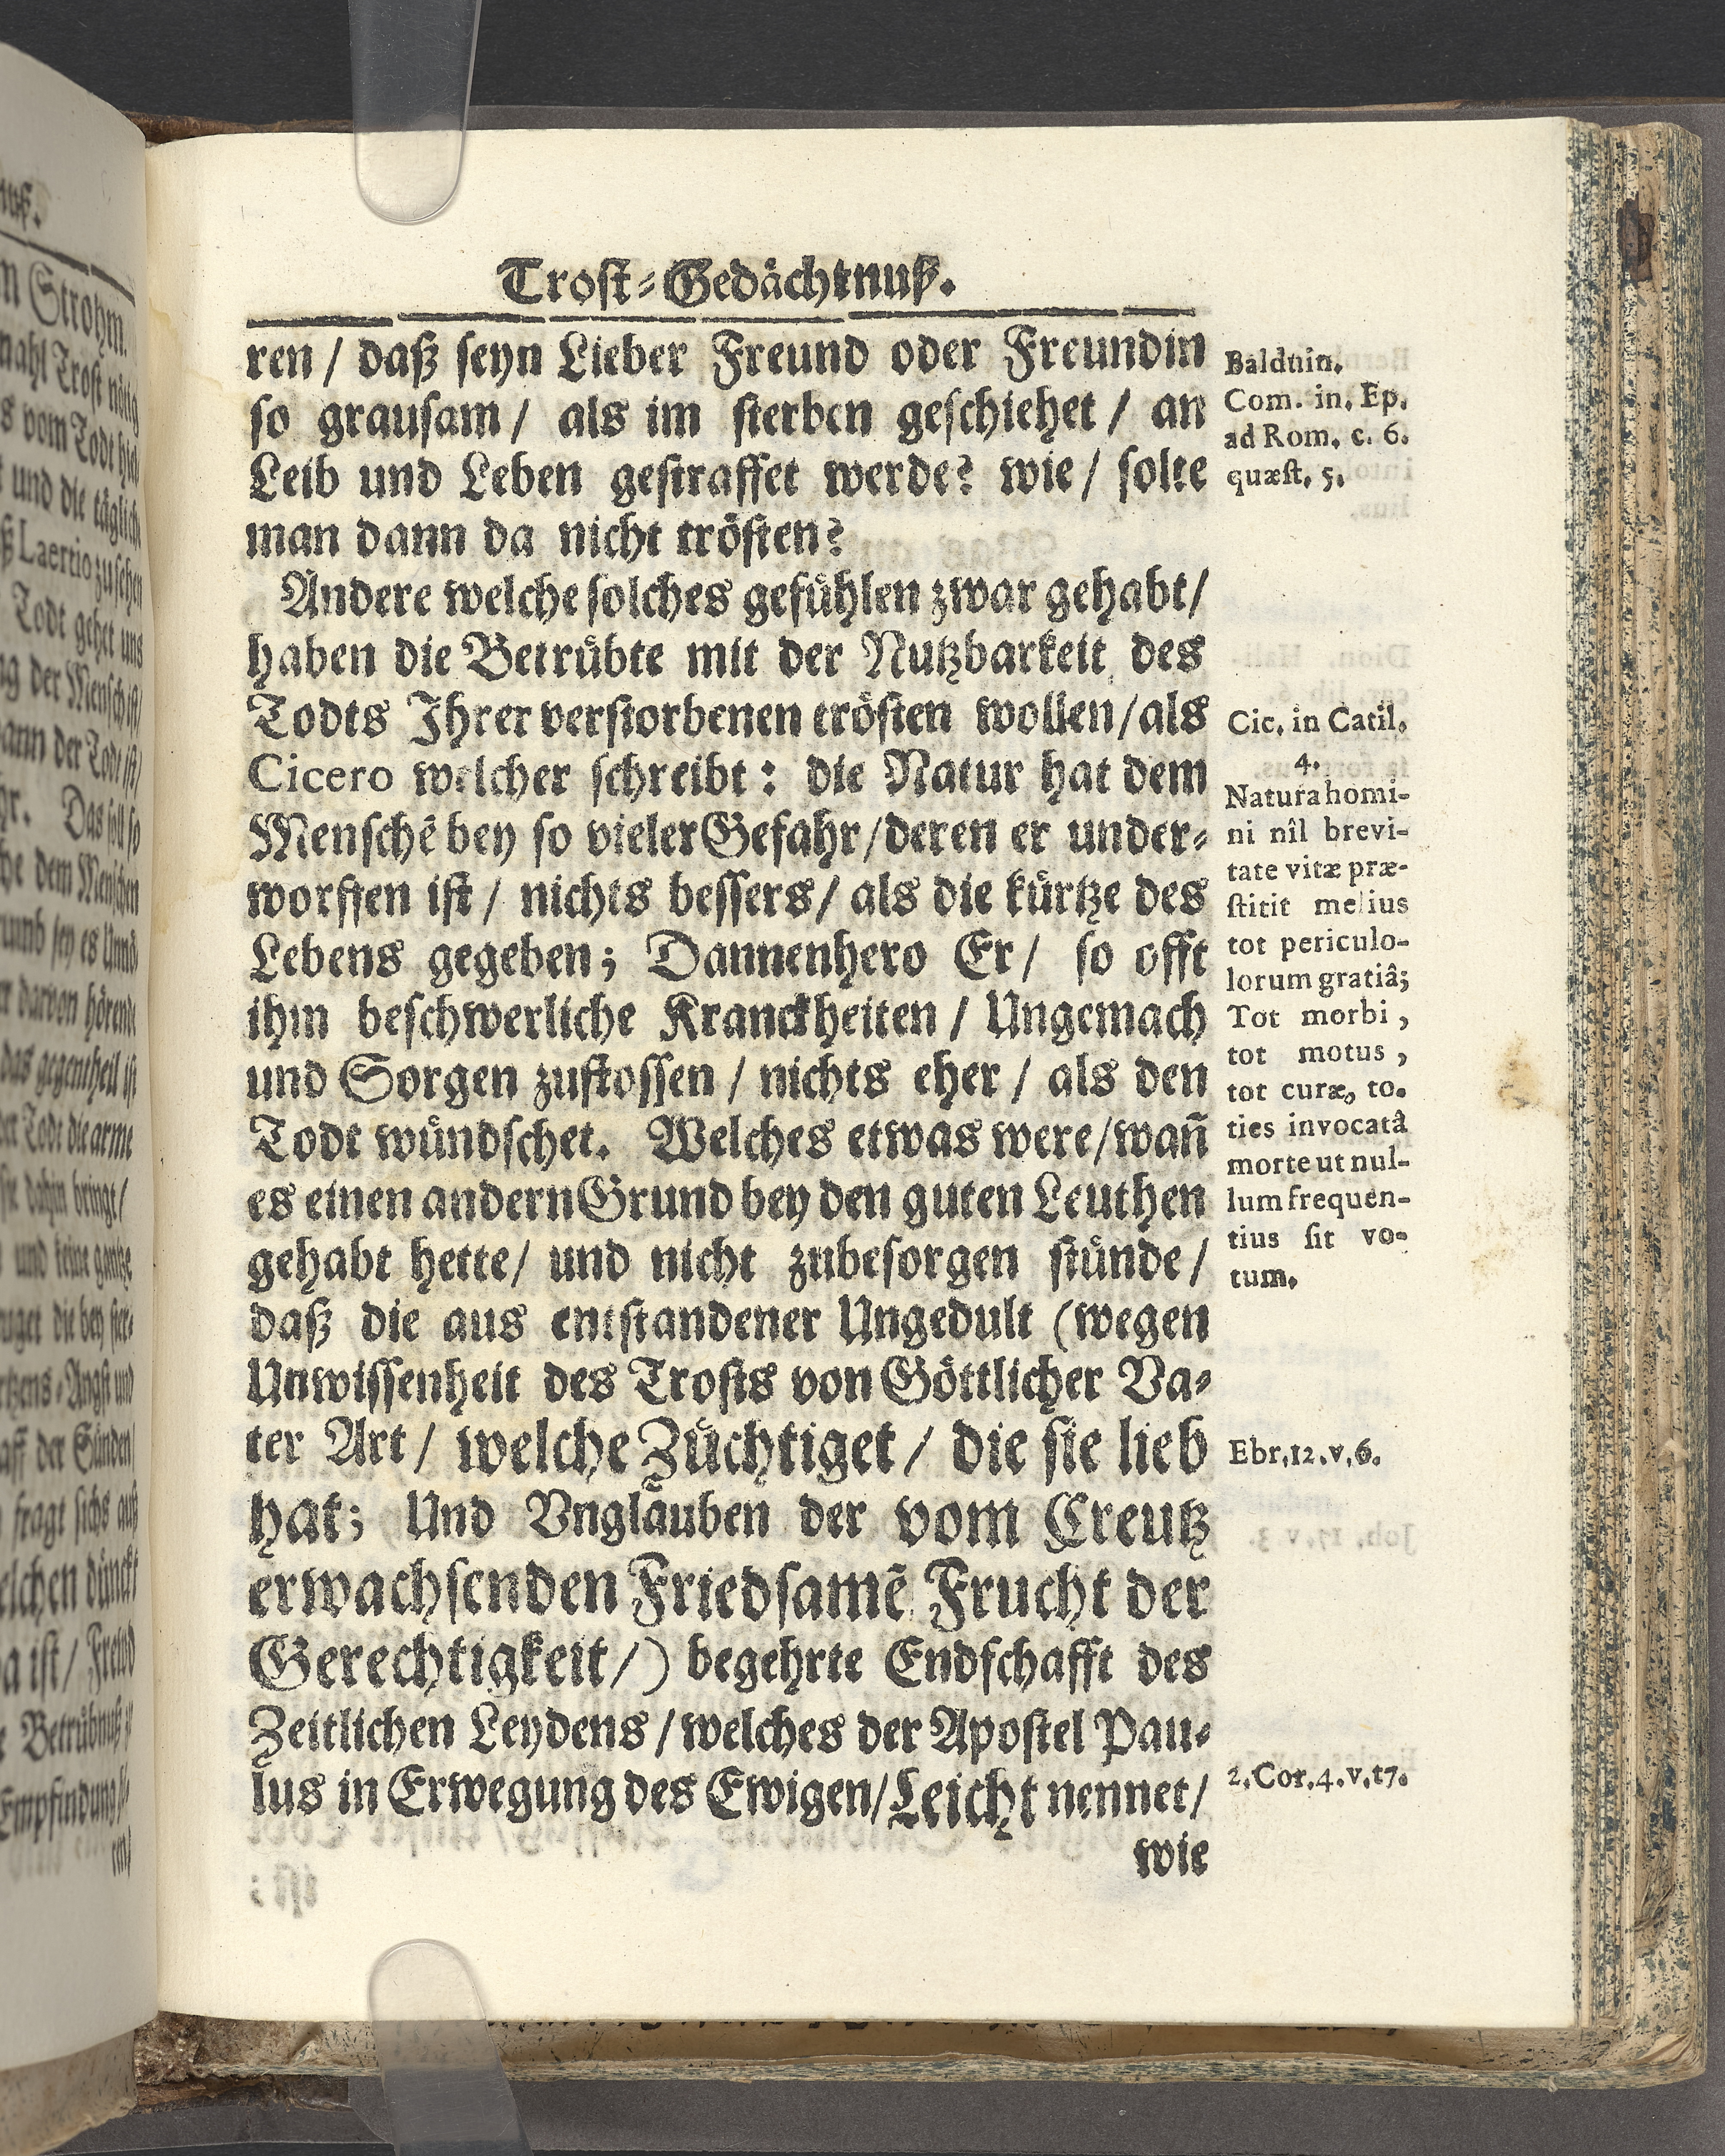 Trost-Gedächtnuß.
ren / daß seyn Lieber Freund oder Freundin
so grausam / als im sterben geschiehet / an
Leib und Leben gestraffet werde? wie / solte
man dann da nicht trösten?
Andere welche solches gefühlen zwar gehabt /
haben die Betrübte mit der Nutzbarkeit des
Todts Ihrer verstorbenen trösten wollen / als
Cicero welcher schreibt: die Natur hat dem
Menschē bey so vieler Gefahr / deren er under-
worffen ist / nichts bessers / als die kürtze des
Lebens gegeben; Dannenhero Er / so offt
ihm beschwerliche Kranckheiten / Ungemach
und Sorgen zustossen / nichts eher / als den
Todt wündschet. Welches etwas were / wañ
es einen andern Grund bey den guten Leuthen
gehabt hette / und nicht zubesorgen stünde /
daß die aus entstandener Ungedult (wegen
Unwissenheit des Trosts von Göttlicher Va-
ter Art / welche Züchtiget / die sie lieb
hat; Und Vnglauben der vom Creutz
erwachsenden Friedsamē Frucht der
Gerechtigkeit /) begehrte Endschafft des
Zeitlichen Leydens / welches der Apostel Pau-
lus in Erwegung des Ewigen / Leicht nennet /
wie
Balduin.
Com. in. Ep.
ad Rom. c. 6.
quæst. 5.
Cic. in Catil.
4.
Natura homi-
ni nîl brevi-
tate vitæ præ-
stitit melius
tot periculo-
lorum gratiâ;
Tot morbi,
tot motus,
tot curæ, to.
ties invocatâ
morte ut nul-
lum frequen-
tius sit vo-
tum.
Ebr. 12. v. 6.
2. Cor. 4. v. 17.